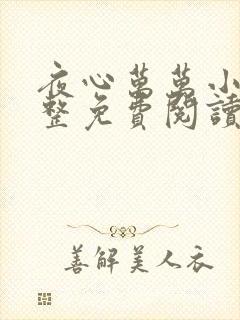 夜心萬萬小
整免費閱讀
善解美人衣